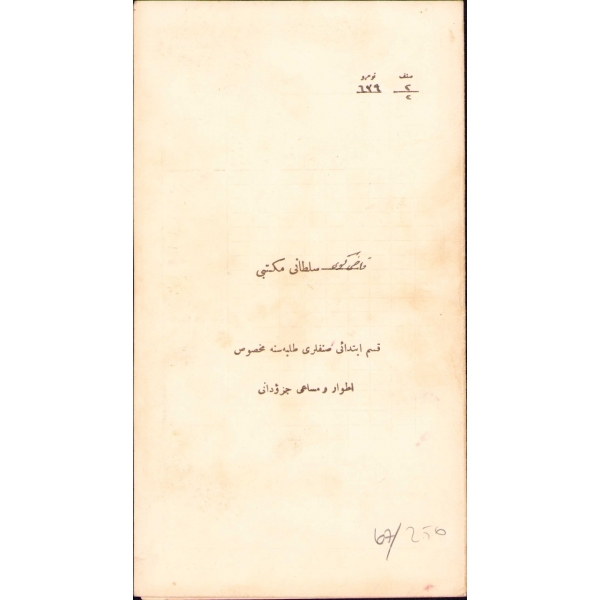 صنف نومرو
٢ ٦٢٩
٢
قاضیكوی سلطانی مكتبی
قسم ابتدائی صنفلری طلبه‌سنه مخصوص
اطوار و مساعی جزؤدانی
67/256